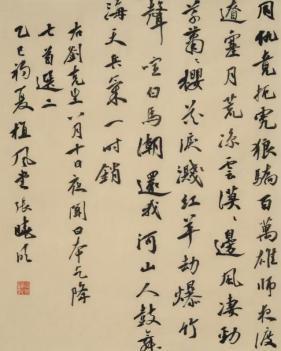 同仇竟托虎狼驕百萬雄師夜渡
遼塞月荒涼雲漠漠邊風凄勁
草蕭蕭櫻花淚濺紅羊劫爆竹
聲喧白馬潮還我河山人鼓舞
海天兵氣一時銷
右劉克生八月十日夜聞日本乞降
七首選二
乙巳初夏風堂張曉